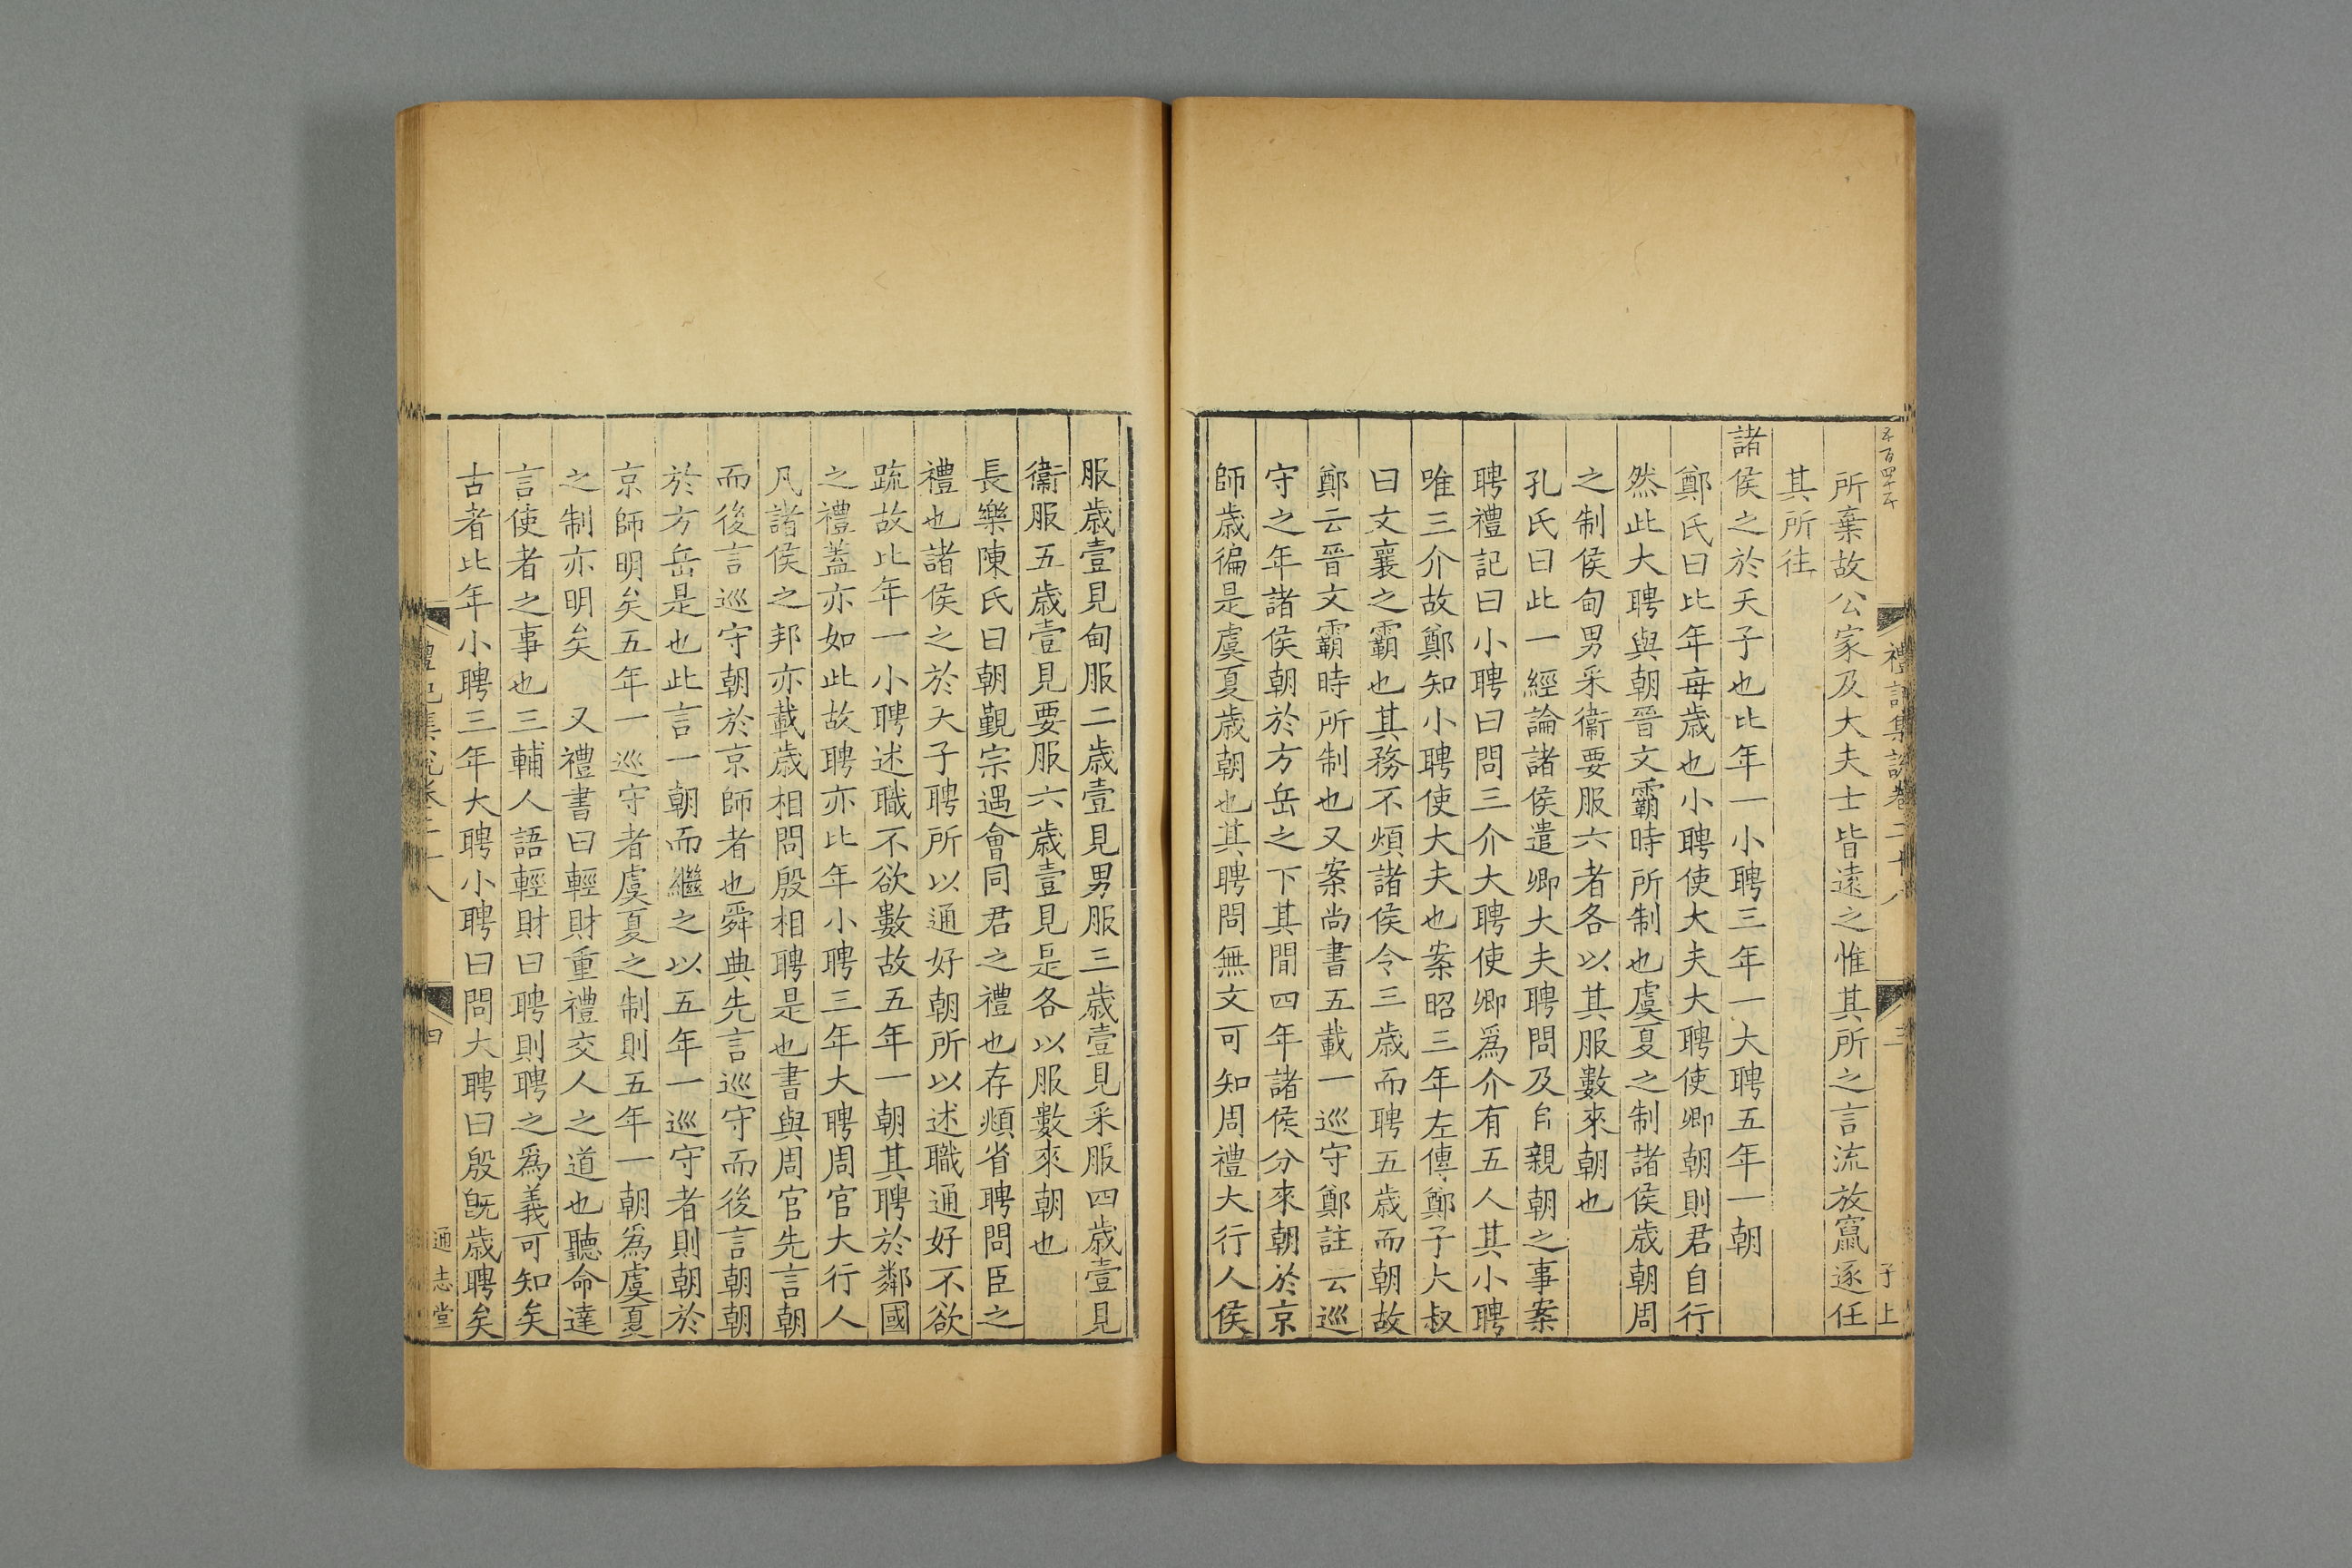 所棄故公家及大夫士皆遠之惟其所之言流放竄逐任
其所往
諸侯之於天子也比年一小聘三年一大聘五年一朝
鄭氏曰比年每歲也小聘使大夫大聘使卿朝則君自行
然此大聘與朝晉文霸時所制也虞夏之制諸侯歲朝周
之制侯甸男采衞要服六者各以其服數來朝也
孔氏曰此一經論諸侯遣卿大夫聘問及自親朝之事案
聘禮記曰小聘曰問三介大聘使卿爲介有五人其小聘
唯三介故鄭知小聘使大夫也案昭三年左傳鄭子大叔
曰文襄之霸也其務不煩諸侯令三歲而聘五歲而朝故
鄭云晉文霸時所制也又案尚書五載一巡守鄭註云巡
守之年諸侯朝於方岳之下其閒四年諸侯分來朝於京
師歲徧是虞夏歲朝也其聘問無文可知周禮大行人侯
服歲壹見甸服二歲壹見男服三歲壹見采服四歲壹見
衞服五歲壹見要服六歲壹見是各以服數來朝也
長樂陳氏曰朝覲宗遇會同君之禮也存頫省聘問臣之
禮也諸侯之於天子聘所以通好朝所以述職通好不欲
疏故比年一小聘述職不欲數故五年一朝其聘於鄰國
之禮蓋亦如此故聘亦比年小聘三年大聘周官大行人
凡諸侯之邦亦載歲相問殷相聘是也書與周官先言朝
而後言巡守朝於京師者也舜典先言巡守而後言朝朝
於方岳是也此言一朝而繼之以五年一巡守者則朝於
京師明矣五年一巡守者虞夏之制則五年一朝爲虞夏
之制亦明矣 又禮書曰輕財重禮交人之道也聽命達
言使者之事也三輔人語輕財曰聘則聘之爲義可知矣
古者比年小聘三年大聘小聘曰問大聘曰殷旣歲聘矣
禮記集說卷二十八
三
子上
四
通志堂